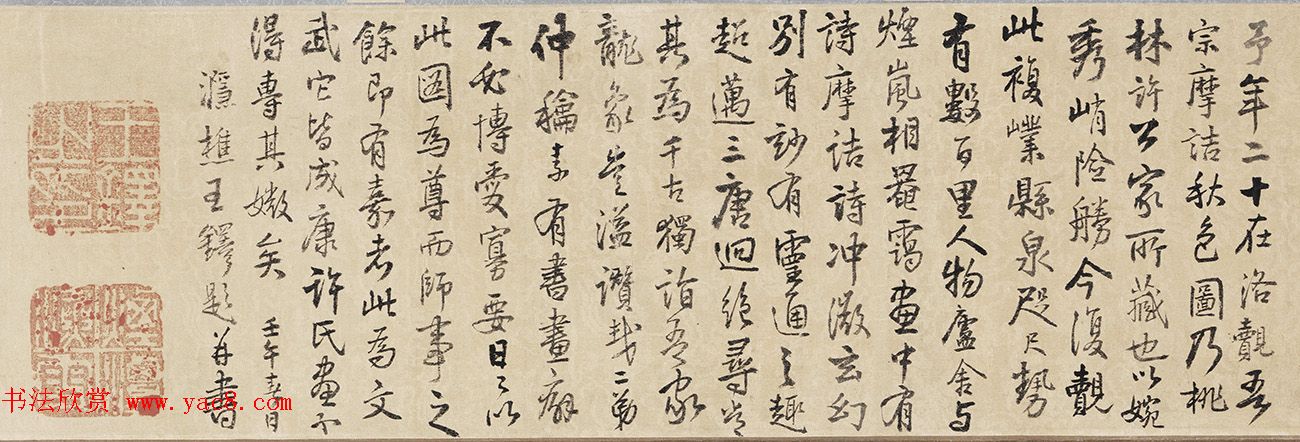 予年二十在洛覿吾
宗摩詰秋色圖乃桃
林許公家所藏也以婉
秀峭險勝今復覿
此複嶫縣泉咫尺勢
有數百里人物廬舍与
煙嵐相罨靄畫中有
詩摩詰詩冲澂玄幻
別有妙有靈通之趣
超邁三唐迥絕尋常
其為千古獨詣吾家
龍象豈溢讚哉二弟
仲鑰素有書畫癖
不必博愛寡要日日以
此圖為尊而師事之
餘即有嘉者此為文
武它皆成康許氏畫不
得專其媺矣 壬午春日
王鐸題并書
书法欣赏 www.yac8.com